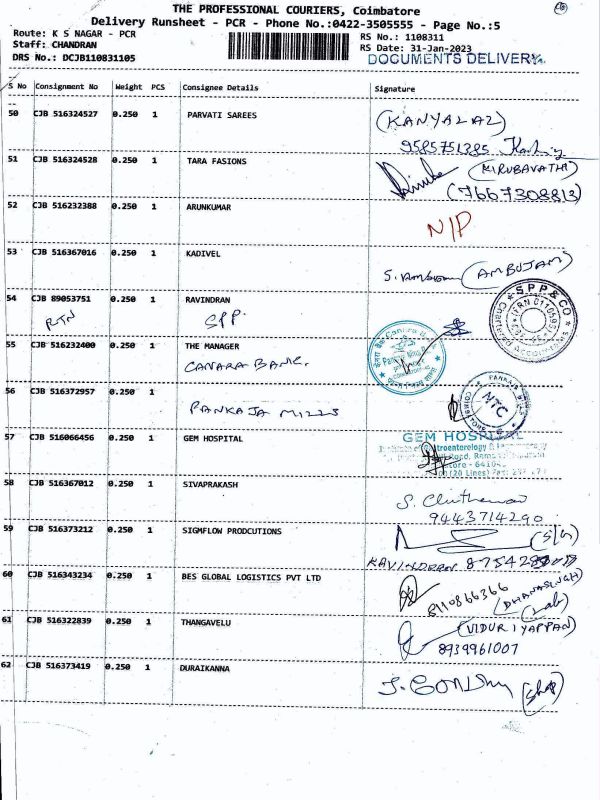 THE PROFESSIONAL COURIERS, Coimbatore
Delivery Runsheet - PCR - Phone No.:0422-3505555 - Page No.:5
Route: K S NAGAR - PCR
Staff: CHANDRAN
DRS No.: DCJB110831105
RS No.: 1108311
RS Date: 31-Jan-2023
DOCUMENTS DELIVERY
S No Consignment No Weight PCS Consignee Details Signature
50 CJB 516324527 0.250 1 PARVATI SAREES (KANYALAL)
9585751385
51 CJB 516324528 0.250 1 TARA FASIONS (KIRUBAVATHI)
(7667308813)
52 CJB 516232388 0.250 1 ARUNKUMAR N/P
53 CJB 516367016 0.250 1 KADIVEL (AMBUJAM)
54 CJB 89053751 0.250 1 RAVINDRAN
RTN SPP. SPP & CO
55 CJB 516232400 0.250 1 THE MANAGER
CANARA BANK.
56 CJB 516372957 0.250 1
PANKAJA MILLS NTC
57 CJB 516066456 0.250 1 GEM HOSPITAL GEM HOSPITAL
58 CJB 516367012 0.250 1 SIVAPRAKASH
9443714290
59 CJB 516373212 0.250 1 SIGMFLOW PRODCUTIONS
60 CJB 516343234 0.250 1 BES GLOBAL LOGISTICS PVT LTD 8110866366
(DHANASINGH)
61 CJB 516322839 0.250 1 THANGAVELU (VIDURIYAPPAN)
8939961007
62 CJB 516373419 0.250 1 DURAIKANNA